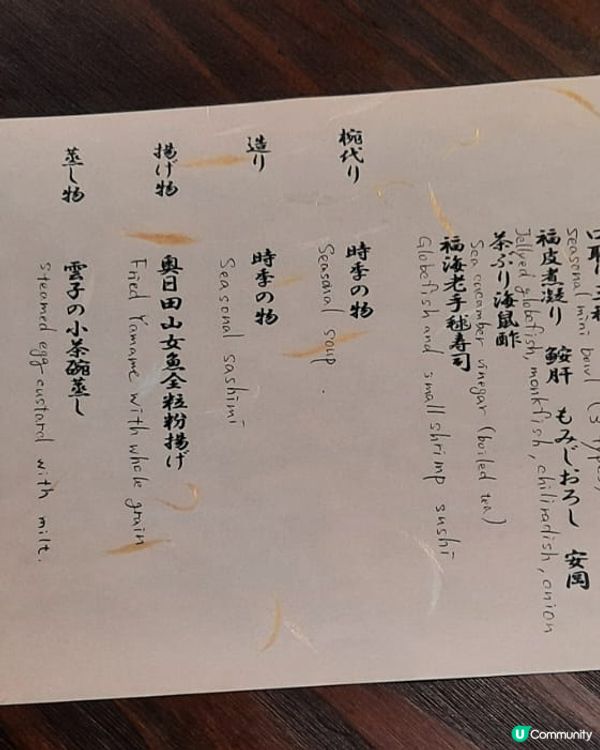 口取り三種
seasonal mini bowl (3 types)
福皮煮凝り 鮟肝 もみじおろし 安岡
Jellyed globefish, monkfish, chiliradish, onion
茶ぶり海鼠酢
Sea cucumber vinegar (boiled tea)
福海老手毬寿司
Globefish and small shrimp sushi
椀代り 時季の物
Seasonal soup.
造り 時季の物
Seasonal sashimi
揚げ物 奥日田山女魚全粒粉揚げ
Fried Yamame with whole grain
蒸し物 雲子の小茶碗蒸し
steamed egg custard with milt.
U Community